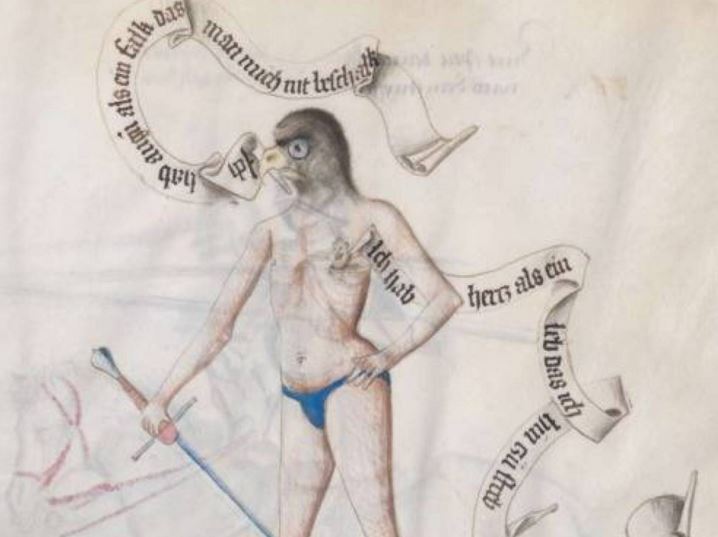 Ich hab augn als ein falk das
man mich nit beschalk
Ich hab
hertz als ein
leb das ich